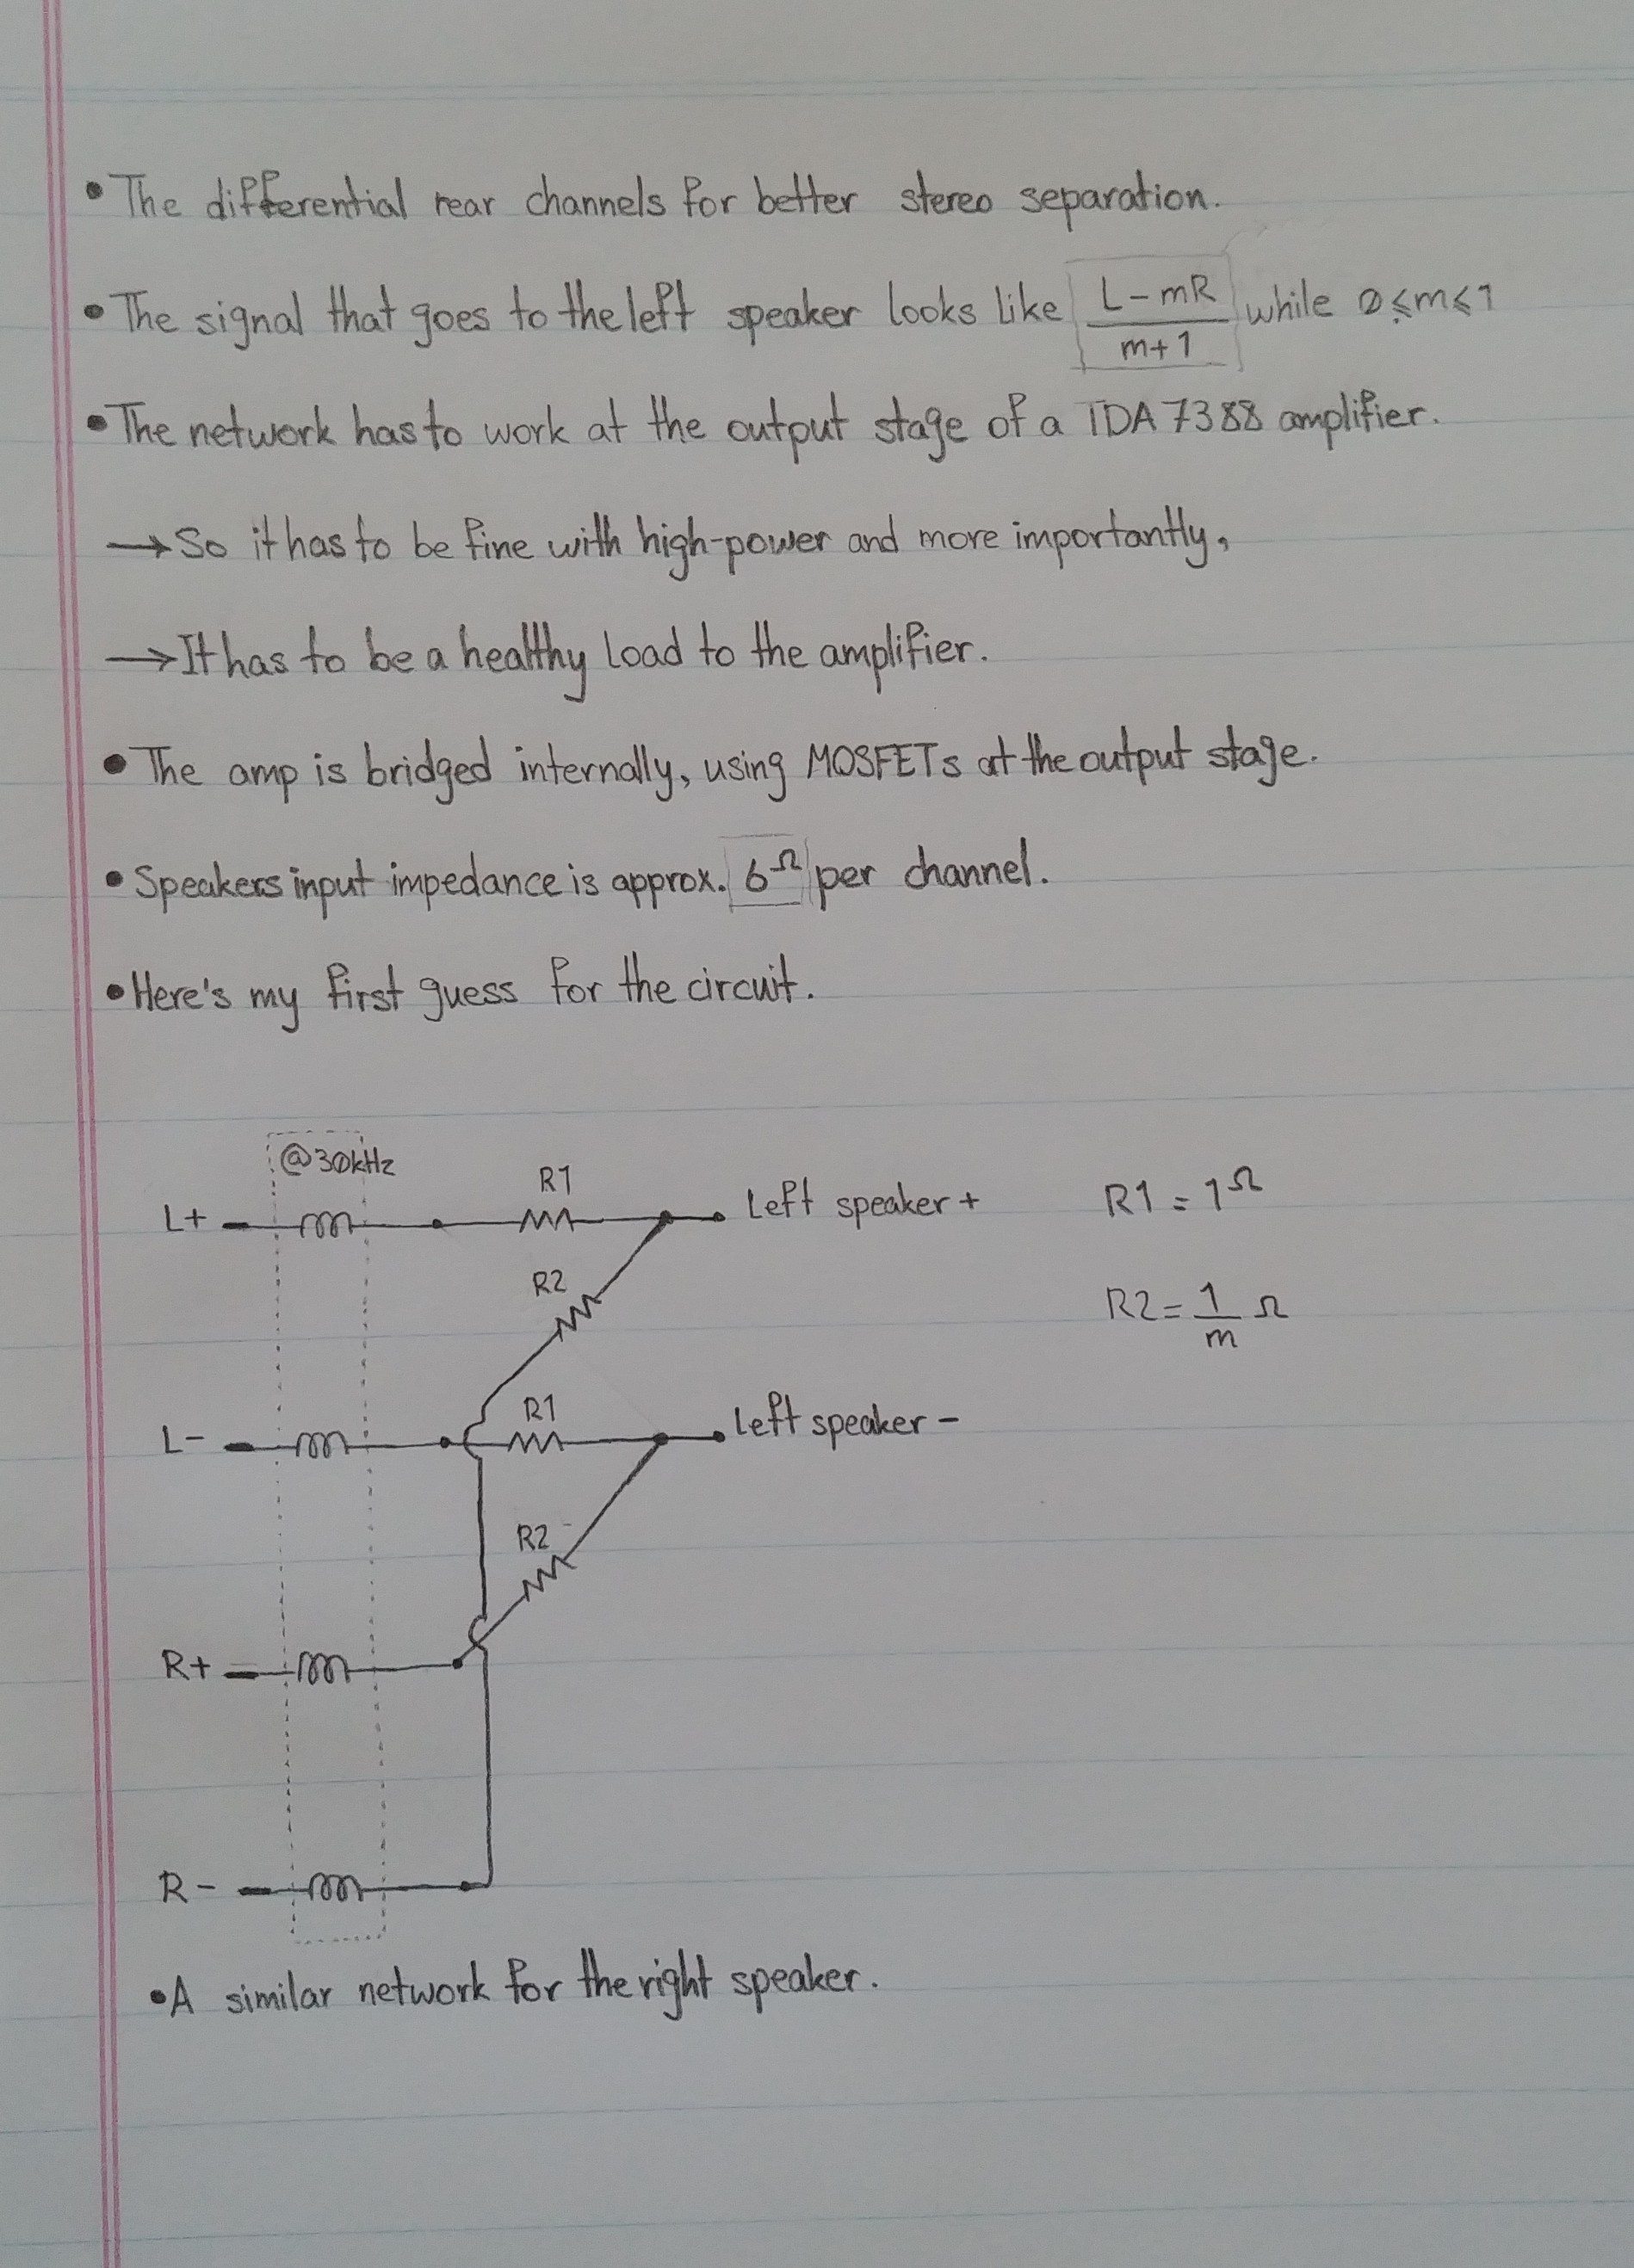 • The differential rear channels for better stereo separation.
• The signal that goes to the left speaker looks like (L-mR)/(m+1) while 0≤m≤1
• The network has to work at the output stage of a TDA 7388 amplifier.
→ So it has to be fine with high-power and more importantly,
→ It has to be a healthy load to the amplifier.
• The amp is bridged internally, using MOSFETs at the output stage.
• Speakers input impedance is approx. 6Ω per channel.
• Here's my first guess for the circuit.
@30kHz
L+ R1 Left speaker + R1 = 1Ω
R2 R2 = 1/m Ω
L- R1 Left speaker -
R2
R+
R-
• A similar network for the right speaker.